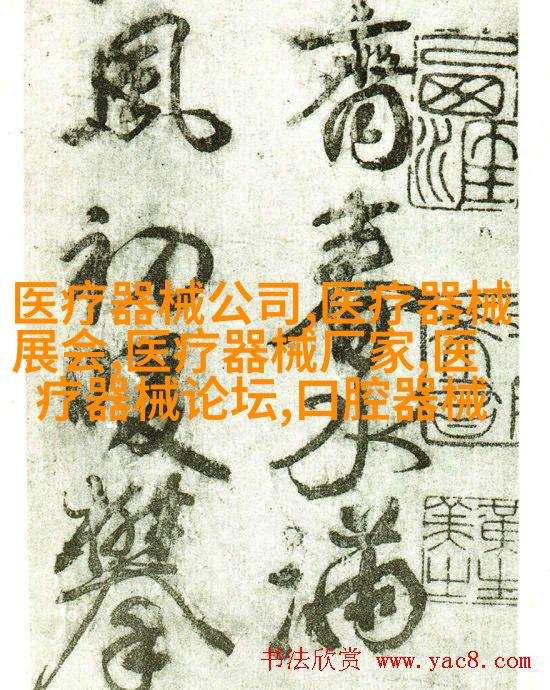 医疗器械公司,医疗器械
展会,医疗器械厂家,医
疗器械论坛,口腔器械
春水滿
風初攀
书法欣赏 www.yac8.com